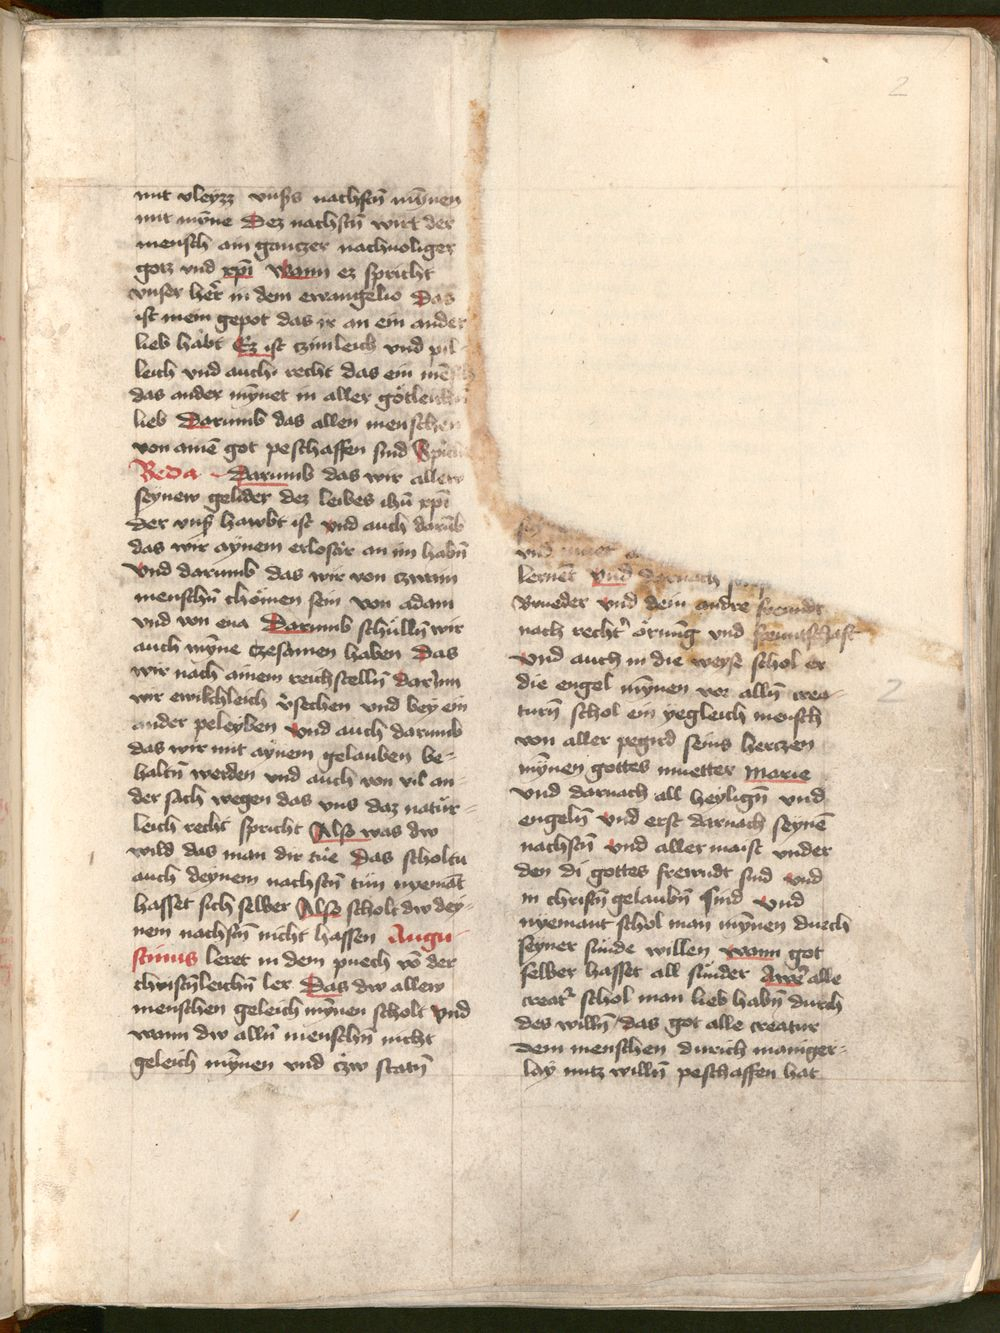 2
mit vleyzz vnsers nachstn̄ mȳnen
mit mȳne Dez nachstn̄ wirt der
mensch ain gantzer nachuoliger
gotz vnd xp̄i Wann ez spricht
vnser her̄ in dem ewangelio Das
ist mein gepot das ir an ein ander
lieb habt Ez ist czimleich vnd pil-
leich vnd auch recht das ein
das ander mȳnet in aller gotleich
lieb Darumb das allen menschen
von ainē got peschaffen sind
Beda Darumb das wir allew
seynew gelider dez leibes ihū xp̄i
der vns̄ hawbt ist vnd auch darūb
das wir aynem erlosär an im habn̄
Vnd darumb das wir von czwain
menschn̄ chömen sein von adam
vnd von eua Darumb schulln̄ wir
auch mȳne czesamen haben Das
wir nach ainem reich stelln̄ darinn
wir ewikchleich v̄sechen vnd bey ein
ander peleyben vnd auch darumb
das wir mit aynem gelauben be-
haltn̄ werden vnd auch von vil an-
der sach wegen das vns daz natür-
leich recht spricht Also was dw
wild das man dir tüe Das scholtu
auch deynem nachstn̄ tün nyemāt
hasset sich selber Also scholt dw dey-
nem nachstn̄ nicht hassen Augu-
stinus leret in dem puech vō der
christn̄leichn̄ ler Das dw allew
menschen geleich mȳnen scholt vnd
wann dw alln̄ menschn̄ nicht
geleich mȳnen vnd czw statn̄
vnd
lernēt Vnd darnach
Brueder vnd dein andre frewndt
nach recht' örnūg vnd frewntschaft
Vnd auch in die weyse schol er
die engel mȳnen vor alln̄ crea-
turn̄ schol ein yegleich mensch
von aller pegird seins hertzen
mȳnen gottes muetter Marie
vnd darnach all heylign̄ vnd
engeln̄ Vnd erst darnach seynē
nachstn̄ Vnd aller maist vnder
den di gottes frewndt sind vnd
in christn̄ gelaubn̄ sind Vnd
nyemant schol man mȳnen durch
seyner sünde willen wann got
selber hasset all sünder Awer alle
creat' schol man lieb habn̄ durch
des willn̄ das got alle creatur
dem menschen durich maniger-
lay nutz willn̄ peschaffen hat
2